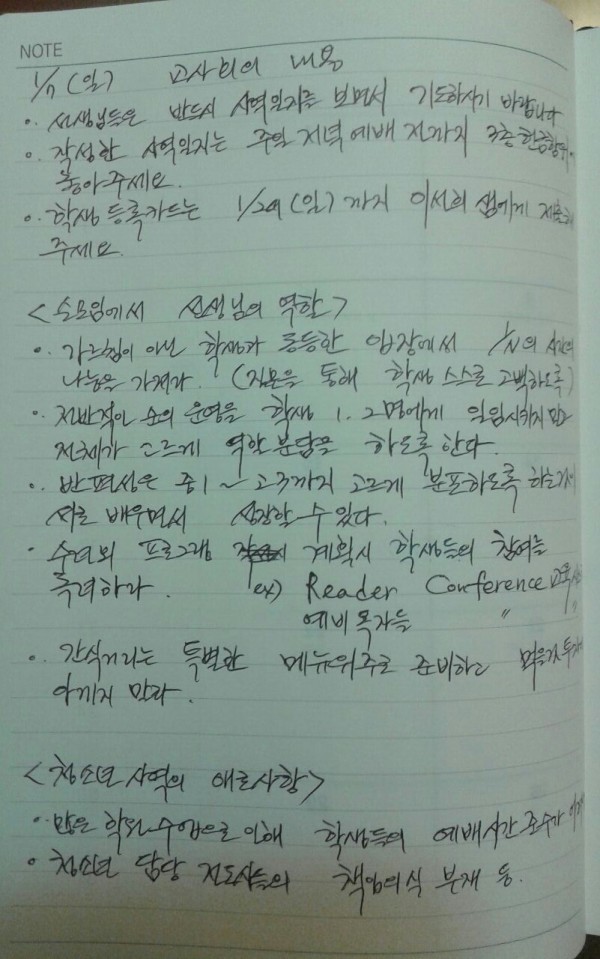 NOTE
1/7 (일) 교사회의 내용
· 선생님들은 반드시 사역일지를 보면서 기도하시기 바랍니다
· 작성한 사역일지는 주일 저녁예배 전까지 3층 헌금함위
놓아주세요.
· 학생 등록카드는 (일)까지 이선희 샘에게 제출해
주세요.
<소모임에서 선생님의 역할>
· 가르침이 아닌 학생과 동등한 입장에서 1/N의 시간의
나눔을 가져라. (질문을 통해 학생 스스로 고백하도록)
· 전반적인 순의 운영을 학생 1. 2명에게 일임시키지 말고
전체가 고르게 역할분담을 하도록 한다.
· 반편성은 중1~고3까지 고르게 분포하도록 하는게
서로 배우면서 성장할 수 있다.
· 수련회 프로그램 계획시 학생들의 참여를
독려하라. ex) Reader Conference
예비 목자들 "
· 간식거리는 특별한 메뉴위주로 준비하고 먹을것
아끼지 말라.
<청소년 사역의 애로사항>
· 많은 학와수업으로 인해 학생들의 예배시간 준수가
· 청소년 담당 전도사들의 책임의식 부재 등.